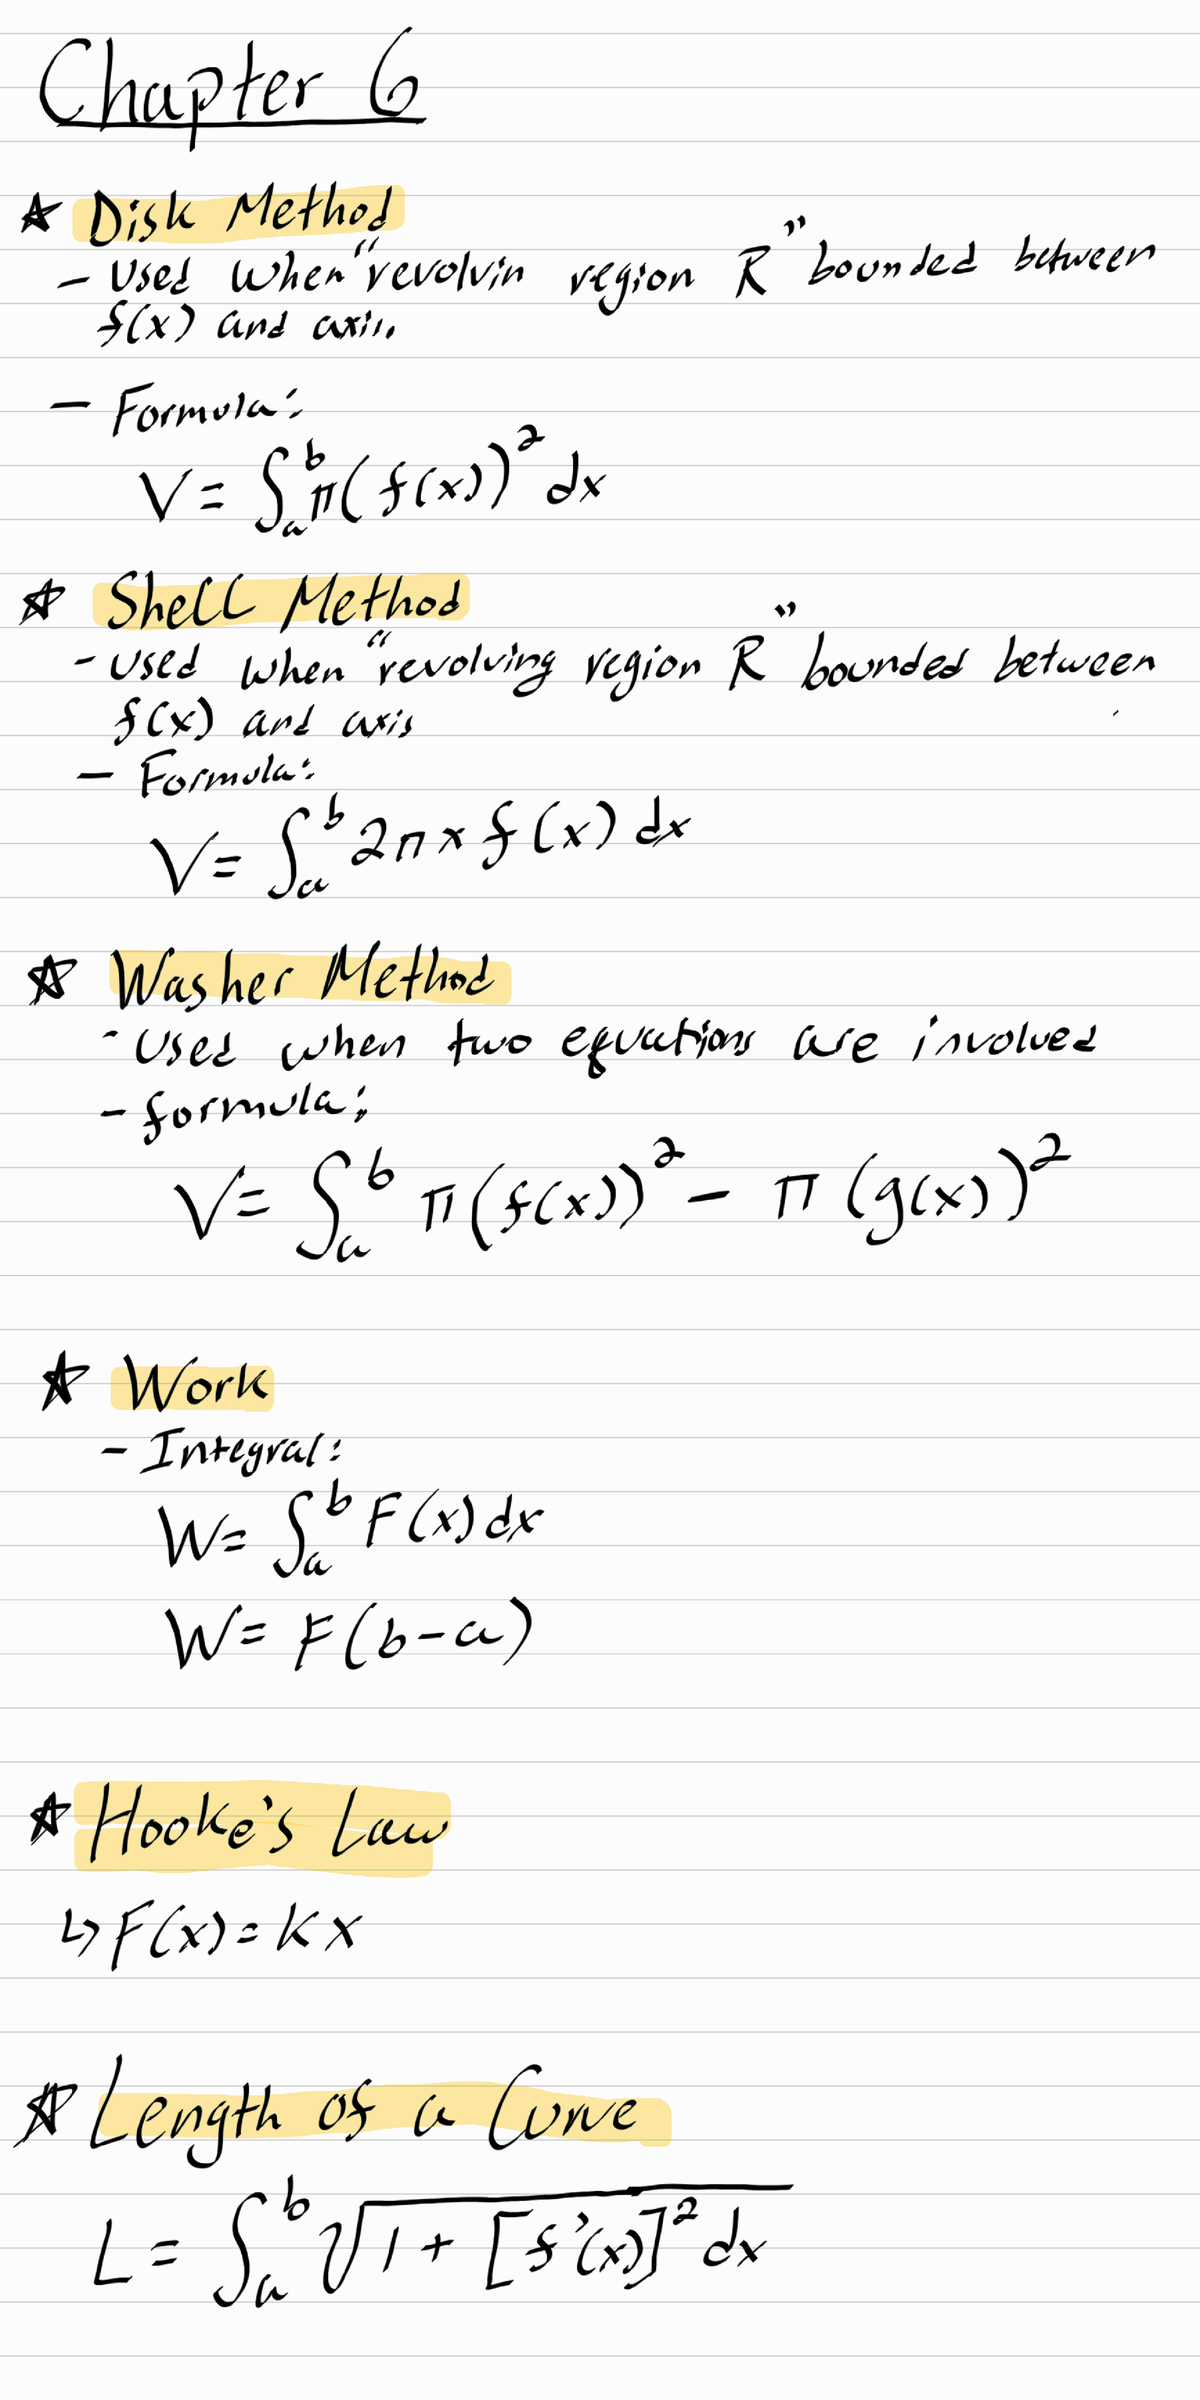 Chapter 6
☆ Disk Method
- Used when "revolvin region R" bounded between
f(x) and axis.
- Formula:
V = ∫_a^b π(f(x))² dx
☆ Shell Method
- Used when "revolving region R" bounded between
f(x) and axis
- Formula:
V = ∫_a^b 2π x f(x) dx
☆ Washer Method
- Used when two equations are involved
- formula:
V = ∫_a^b π(f(x))² - π(g(x))²
☆ Work
- Integral:
W = ∫_a^b F(x) dx
W = F(b-a)
☆ Hooke's Law
↳ F(x) = Kx
☆ Length of a Curve
L = ∫_a^b √(1 + [f'(x)]² dx